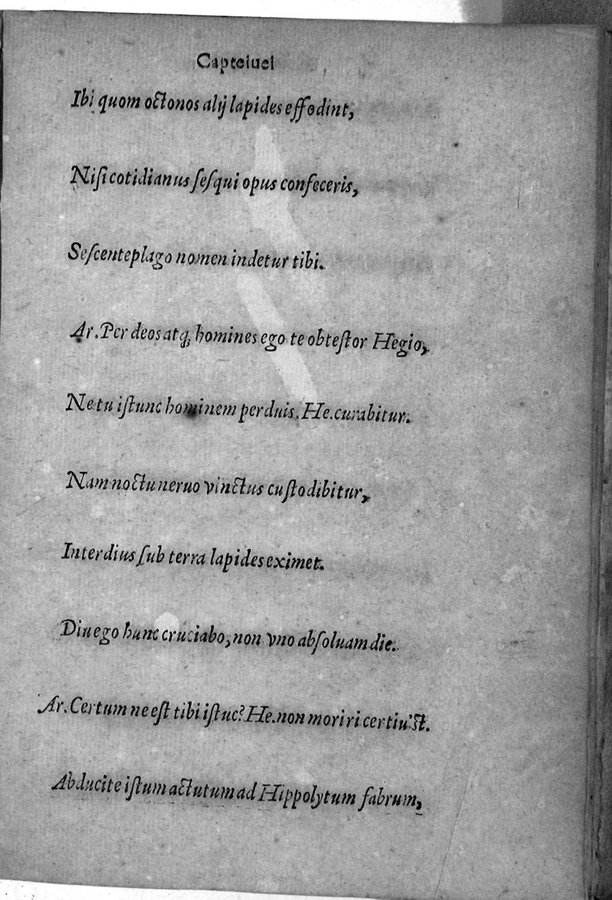 Capteiuei
Ibi quom octonos alij lapides effodint,
Nisi cotidianus sesqui opus confeceris,
Sescenteplago nomen indetur tibi.
Ar. Per deos atq; homines ego te obtestor Hegio,
Ne tu istunc hominem perduis. He. curabitur.
Nam noctu neruo vinctus custodibitur,
Interdius sub terra lapides eximet.
Diu ego hunc cruciabo, non vno absoluam die.
Ar. Certum ne est tibi istuc? He. non moriri certiu'st.
Abducite istum actutum ad Hippolytum fabrum,